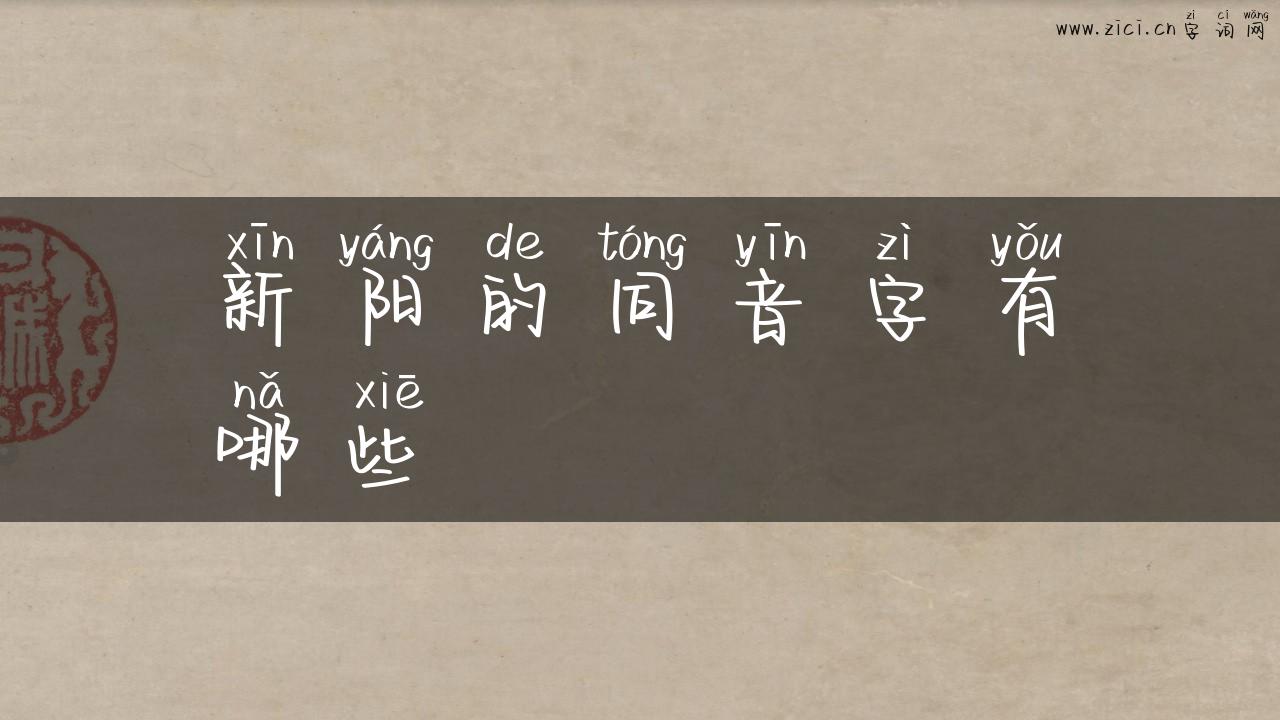 zì cí wǎng
www.zici.cn 字 词 网
xīn yáng de tóng yīn zì yǒu
新 阳 的 同 音 字 有
nǎ xiē
哪 些